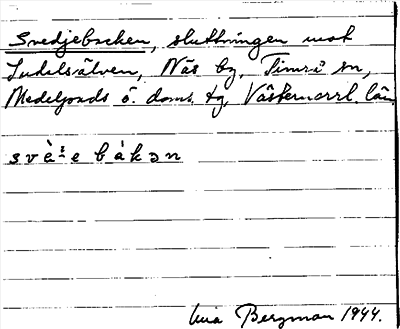 Svedjebacken, sluttningen mot
Indalsälven, Näs by, Timrå sn,
Medelpads ö. doms. tg, Västernorrl. län
svè:e bàkən
Bergman 1944.